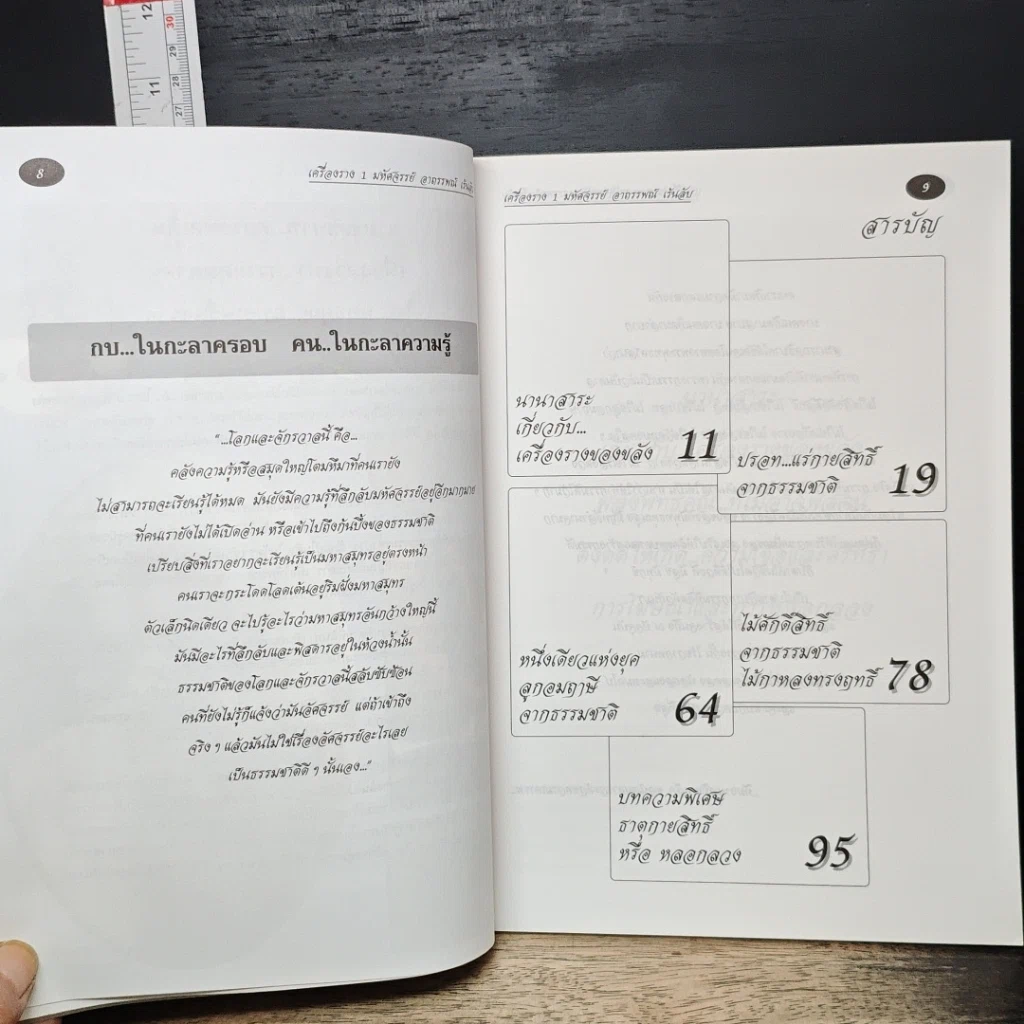 12
30
29
11
28
27
8
เครื่องราง 1 มหัศจรรย์ อาถรรพณ์ เร้นลับ
กบ...ในกะลาครอบ คน..ในกะลาความรู้
"...โลกและจักรวาลนี้ คือ...
คลังความรู้หรือสมุดใหญ่โตมหึมาที่คนเรายัง
ไม่สามารถจะเรียนรู้ได้หมด มันยังมีความรู้ที่ลึกลับมหัศจรรย์อยู่อีกมากมาย
ที่คนเรายังไม่ได้เปิดอ่าน หรือเข้าไปถึงก้นบึ้งของธรรมชาติ
เปรียบสิ่งที่เราอยากจะเรียนรู้เป็นมหาสมุทรอยู่ตรงหน้า
คนเราจะกระโดดโลดเต้นอยู่ริมฝั่งมหาสมุทร
ตัวเล็กนิดเดียว จะไปรู้อะไรว่ามหาสมุทรอันกว้างใหญ่นี้
มันมีอะไรที่ลึกลับและพิสดารอยู่ในห้วงน้ำนั้น
ธรรมชาติของโลกและจักรวาลนี้สลับซับซ้อน
คนที่ยังไม่รู้ก็แจ้งว่ามันอัศจรรย์ แต่ถ้าเข้าถึง
จริง ๆ แล้วมันไม่ใช่เรื่องอัศจรรย์อะไรเลย
เป็นธรรมชาติดี ๆ นั้นเอง..."
เครื่องราง 1 มหัศจรรย์ อาถรรพณ์ เร้นลับ
9
สารบัญ
นานาสาระ
เกี่ยวกับ...
เครื่องรางของขลัง 11
ปรอท...แร่กายสิทธิ์
จากธรรมชาติ 19
หนึ่งเดียวแห่งยุค
ลูกอมฤาษี
จากธรรมชาติ 64
ไม้ศักดิ์สิทธิ์
จากธรรมชาติ
ไม้กาหลงทรงฤทธิ์ 78
บทความพิเศษ
ธาตุกายสิทธิ์
หรือ หลอกลวง 95